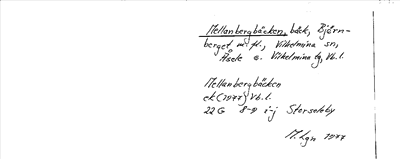 Mellanbergbäcken, bäck, Björn-
berget m. fl., Vilhelmina sn,
Åsele o. Vilhelmina tg, Vb. l.
Mellanbergbäcken
ek (1977) Vb. l.
22G 8-9 i-j Storseleby
M. Lgn 1977